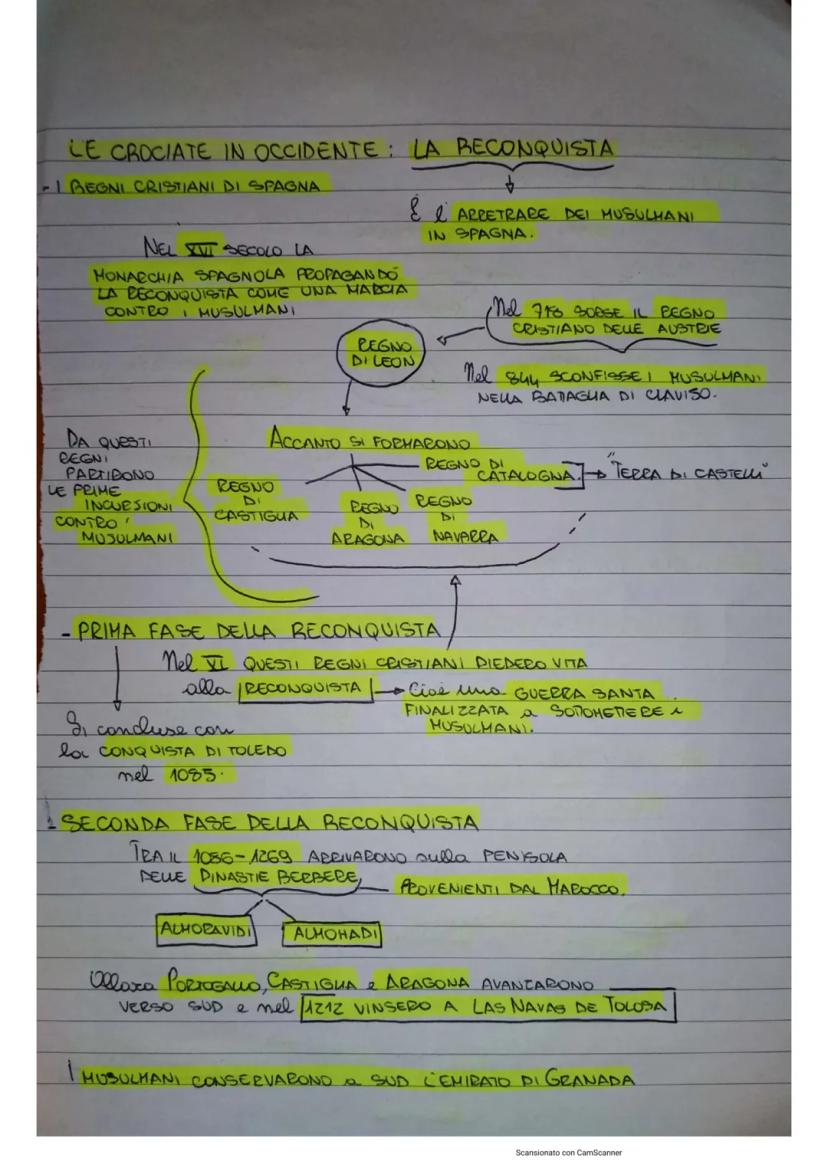 LE CROCIATE IN OCCIDENTE: LA RECONQUISTA
- I REGNI CRISTIANI DI SPAGNA
È l'ARRETRARE DEI MUSULMANI
IN SPAGNA.
NEL XVI SECOLO LA
MONARCHIA SPAGNOLA PROPAGANDÒ
LA RECONQUISTA COME UNA MARCIA
CONTRO I MUSULMANI
Nel 718 SORSE IL REGNO
CRISTIANO DELLE AUSTRIE
REGNO
DI LEON
Nel 844 SCONFISSE I MUSULMANI
NELLA BATTAGLIA DI CLAVISO.
DA QUESTI
REGNI
PARTIRONO
LE PRIME
INCURSIONI
CONTRO I
MUSULMANI
ACCANTO SI FORMARONO
REGNO DI
CATALOGNA. → "TERRA DI CASTELLI"
REGNO
DI
CASTIGLIA
REGNO
DI
ARAGONA
REGNO
DI
NAVARRA
- PRIMA FASE DELLA RECONQUISTA
Nel XI QUESTI REGNI CRISTIANI DIEDERO VITA
alla RECONQUISTA → Cioè una GUERRA SANTA
FINALIZZATA a SOTTOMETTERE i
MUSULMANI.
Si concluse con
la CONQUISTA DI TOLEDO
nel 1085.
- SECONDA FASE DELLA RECONQUISTA
TRA IL 1086-1269 ARRIVARONO sulla PENISOLA
DELLE DINASTIE BERBERE, PROVENIENTI DAL MAROCCO.
ALMORAVIDI
ALMOHADI
Allora PORTOGALLO, CASTIGLIA e ARAGONA AVANZARONO
VERSO SUD e nel 1212 VINSERO A LAS NAVAS DE TOLOSA
I MUSULMANI CONSERVARONO a SUD L'EMIRATO DI GRANADA
Scansionato con CamScanner